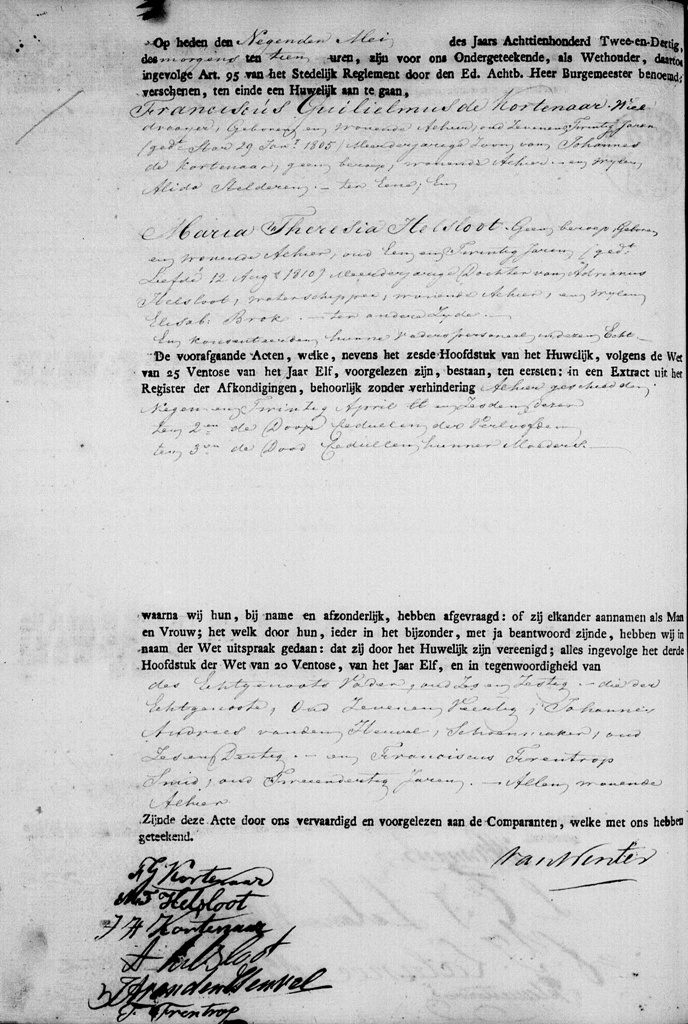 Op heden den Negenden Mei des Jaars Achttienhonderd Twee-en-Dertig,
des morgens ten tien uren, zijn voor ons Ondergeteekende, als Wethouder, daartoe
ingevolge Art. 95 van het Stedelijk Reglement door den Ed. Achtb. Heer Burgemeester benoemd,
verschenen, ten einde een Huwelijk aan te gaan,
Franciscus Guilielmus de Kortenaar
Geboren en wonende Alhier, oud Zeven en Twintig Jaren
(gedt Star 29 Janʸ 1805) Meerderjarige Zoon van Johannes
de Kortenaar, geen beroep, wonende Alhier en wylen
Alida Helderen, ter Eene, En
Maria Theresia Helsloot Geen beroep, Geboren
en wonende Alhier, oud Een en Twintig Jaren (gedt
Liefde 12 Augt 1810) Meerderjarige Dochter van Adrianus
Helsloot, waterschipper, wonende Alhier, en wylen
Elisab: Brok. ter andere Zyde.
En consenteerden hunne Vaders personeel in dezen Echt.
De voorafgaande Acten, welke, nevens het zesde Hoofdstuk van het Huwelijk, volgens de Wet
van 25 Ventose van het Jaar Elf, voorgelezen zijn, bestaan, ten eersten: in een Extract uit het
Register der Afkondigingen, behoorlijk zonder verhindering Alhier geschied den
Negen en Twintig April en Zesden dezer
ten 2en de Doop Cedullen der Verloofden
ten 3en de Dood Cedullen hunner Moeders.
waarna wij hun, bij name en afzonderlijk, hebben afgevraagd: of zij elkander aannamen als Man
en Vrouw; het welk door hun, ieder in het bijzonder, met ja beantwoord zijnde, hebben wij in
naam der Wet uitspraak gedaan: dat zij door het Huwelijk zijn vereenigd; alles ingevolge het derde
Hoofdstuk der Wet van 20 Ventose, van het Jaar Elf, en in tegenwoordigheid van
des Echtgenoots Vader, oud Zes en Zestig die der
Echtgenoote, Oud Zeven en Veertig, Johannes
Andreas van den Heuvel, Schoenmaker, oud
Zes en Dertig en Franciscus Frentrop
Smid, oud Twee en dertig Jaren. Allen wonende
Alhier.
Zijnde deze Acte door ons vervaardigd en voorgelezen aan de Comparanten, welke met ons hebben
geteekend.
Van Winter
F G Kortenaar
M T Helsloot
J H Kortenaar
A Helsloot
J A van den Heuvel
F. Frentrop